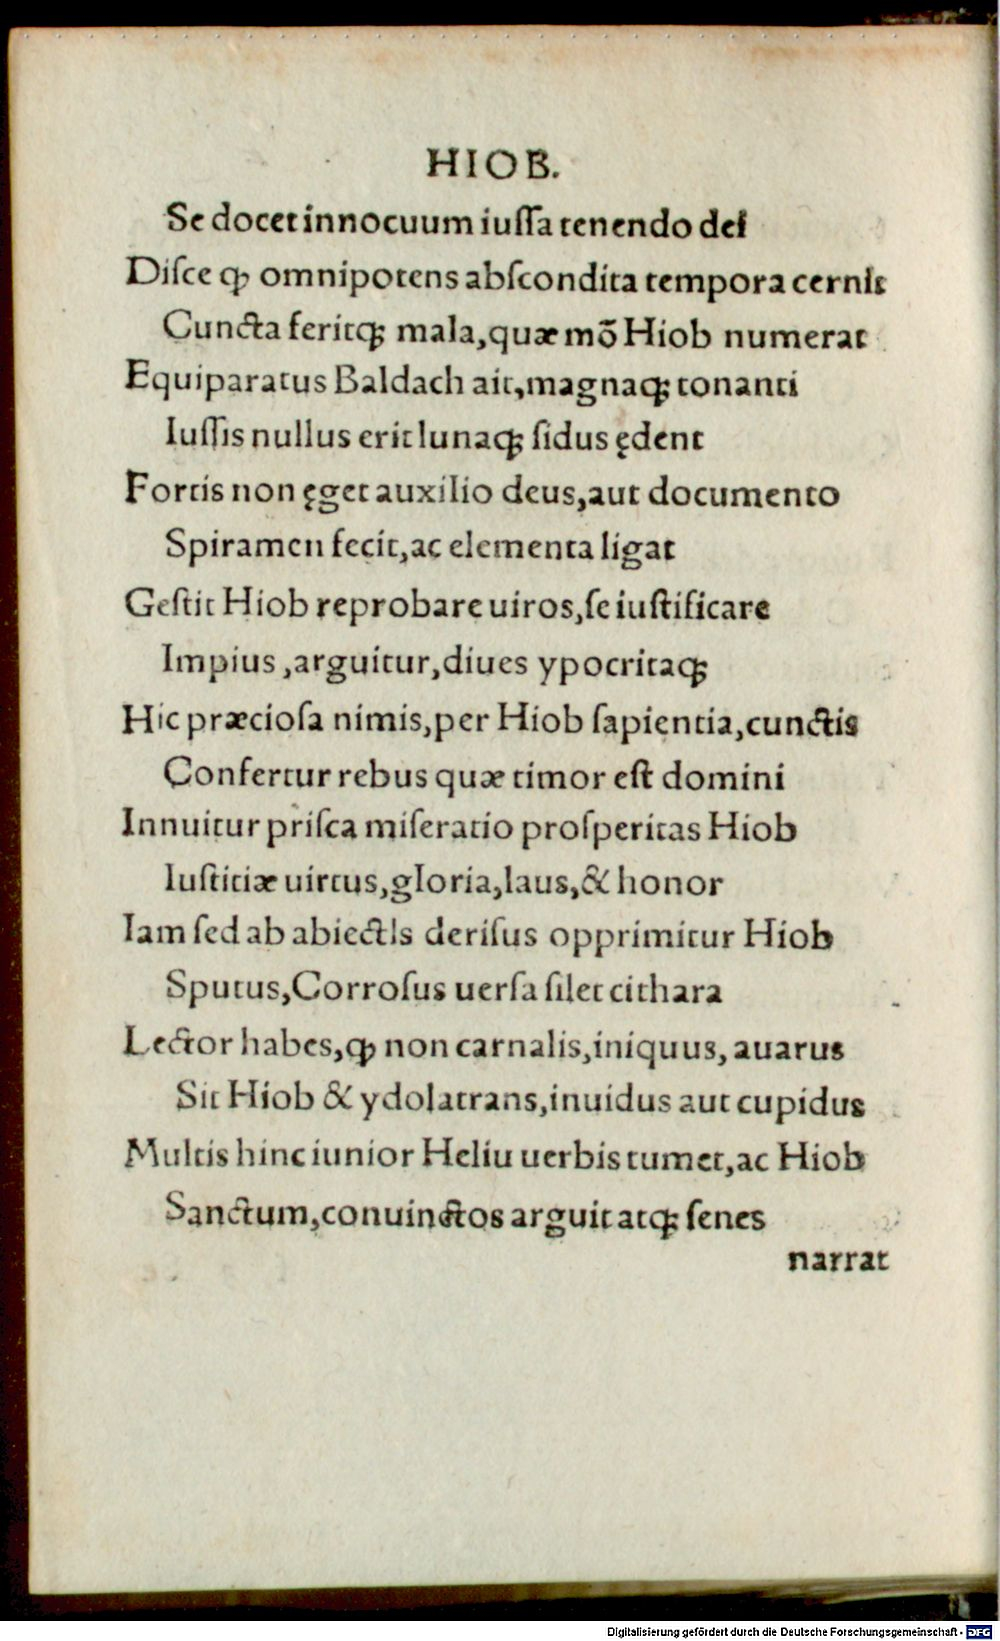 HIOB.
Se docet innocuum iuſſa tenendo dei
Diſce ꝙ omnipotens abſcondita tempora cernit
Cuncta feritqꝫ mala,quæ mō Hiob numerat
Equiparatus Baldach ait,magnaqꝫ tonanti
Iuſſis nullus erit lunaqꝫ ſidus ędent
Fortis non ęget auxilio deus,aut documento
Spiramen fecit,ac elementa ligat
Geſtit Hiob reprobare uiros,ſe iuſtificare
Impius ,arguitur,diues ypocritaqꝫ
Hic præcioſa nimis,per Hiob ſapientia,cunctis
Confertur rebus quæ timor eſt domini
Innuitur priſca miſeratio proſperitas Hiob
Iuſticiæ uirtus,gloria,laus,& honor
Iam ſed ab abiectIs deriſus opprimitur Hiob
Sputus,Corroſus uerſa ſilet cithara
Lector habes,ꝙ non carnalis,iniquus, auarus
Sit Hiob & ydolatrans,inuidus aut cupidus
Multis hinc iunior Heliu uerbis tumet,ac Hiob
Sanctum,conuinctos arguit atqꝫ ſenes
narrat
Digitalisierung gefördert durch die Deutsche Forschungsgemeinschaft - DFG